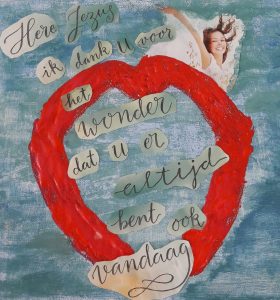 Here Jezus
ik dank U voor
het
wonder
dat U er
altijd
bent ook
vandaag